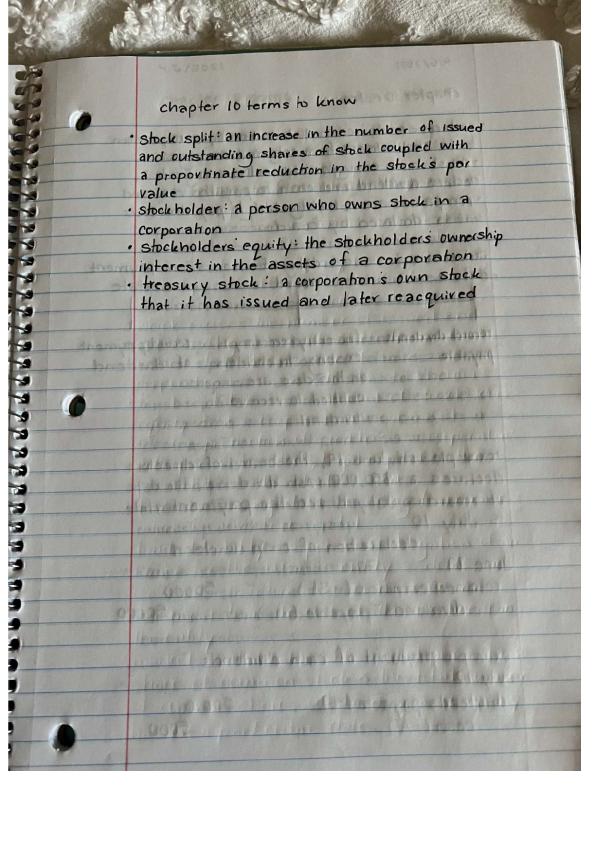 chapter 10 terms to know
• stock split: an increase in the number of issued
and outstanding shares of stock coupled with
a proportinate reduction in the stock's par
value
• stockholder: a person who owns stock in a
corporation
• stockholders' equity: the stockholders' ownership
interest in the assets of a corporation
• treasury stock: a corporation's own stock
that it has issued and later reacquired